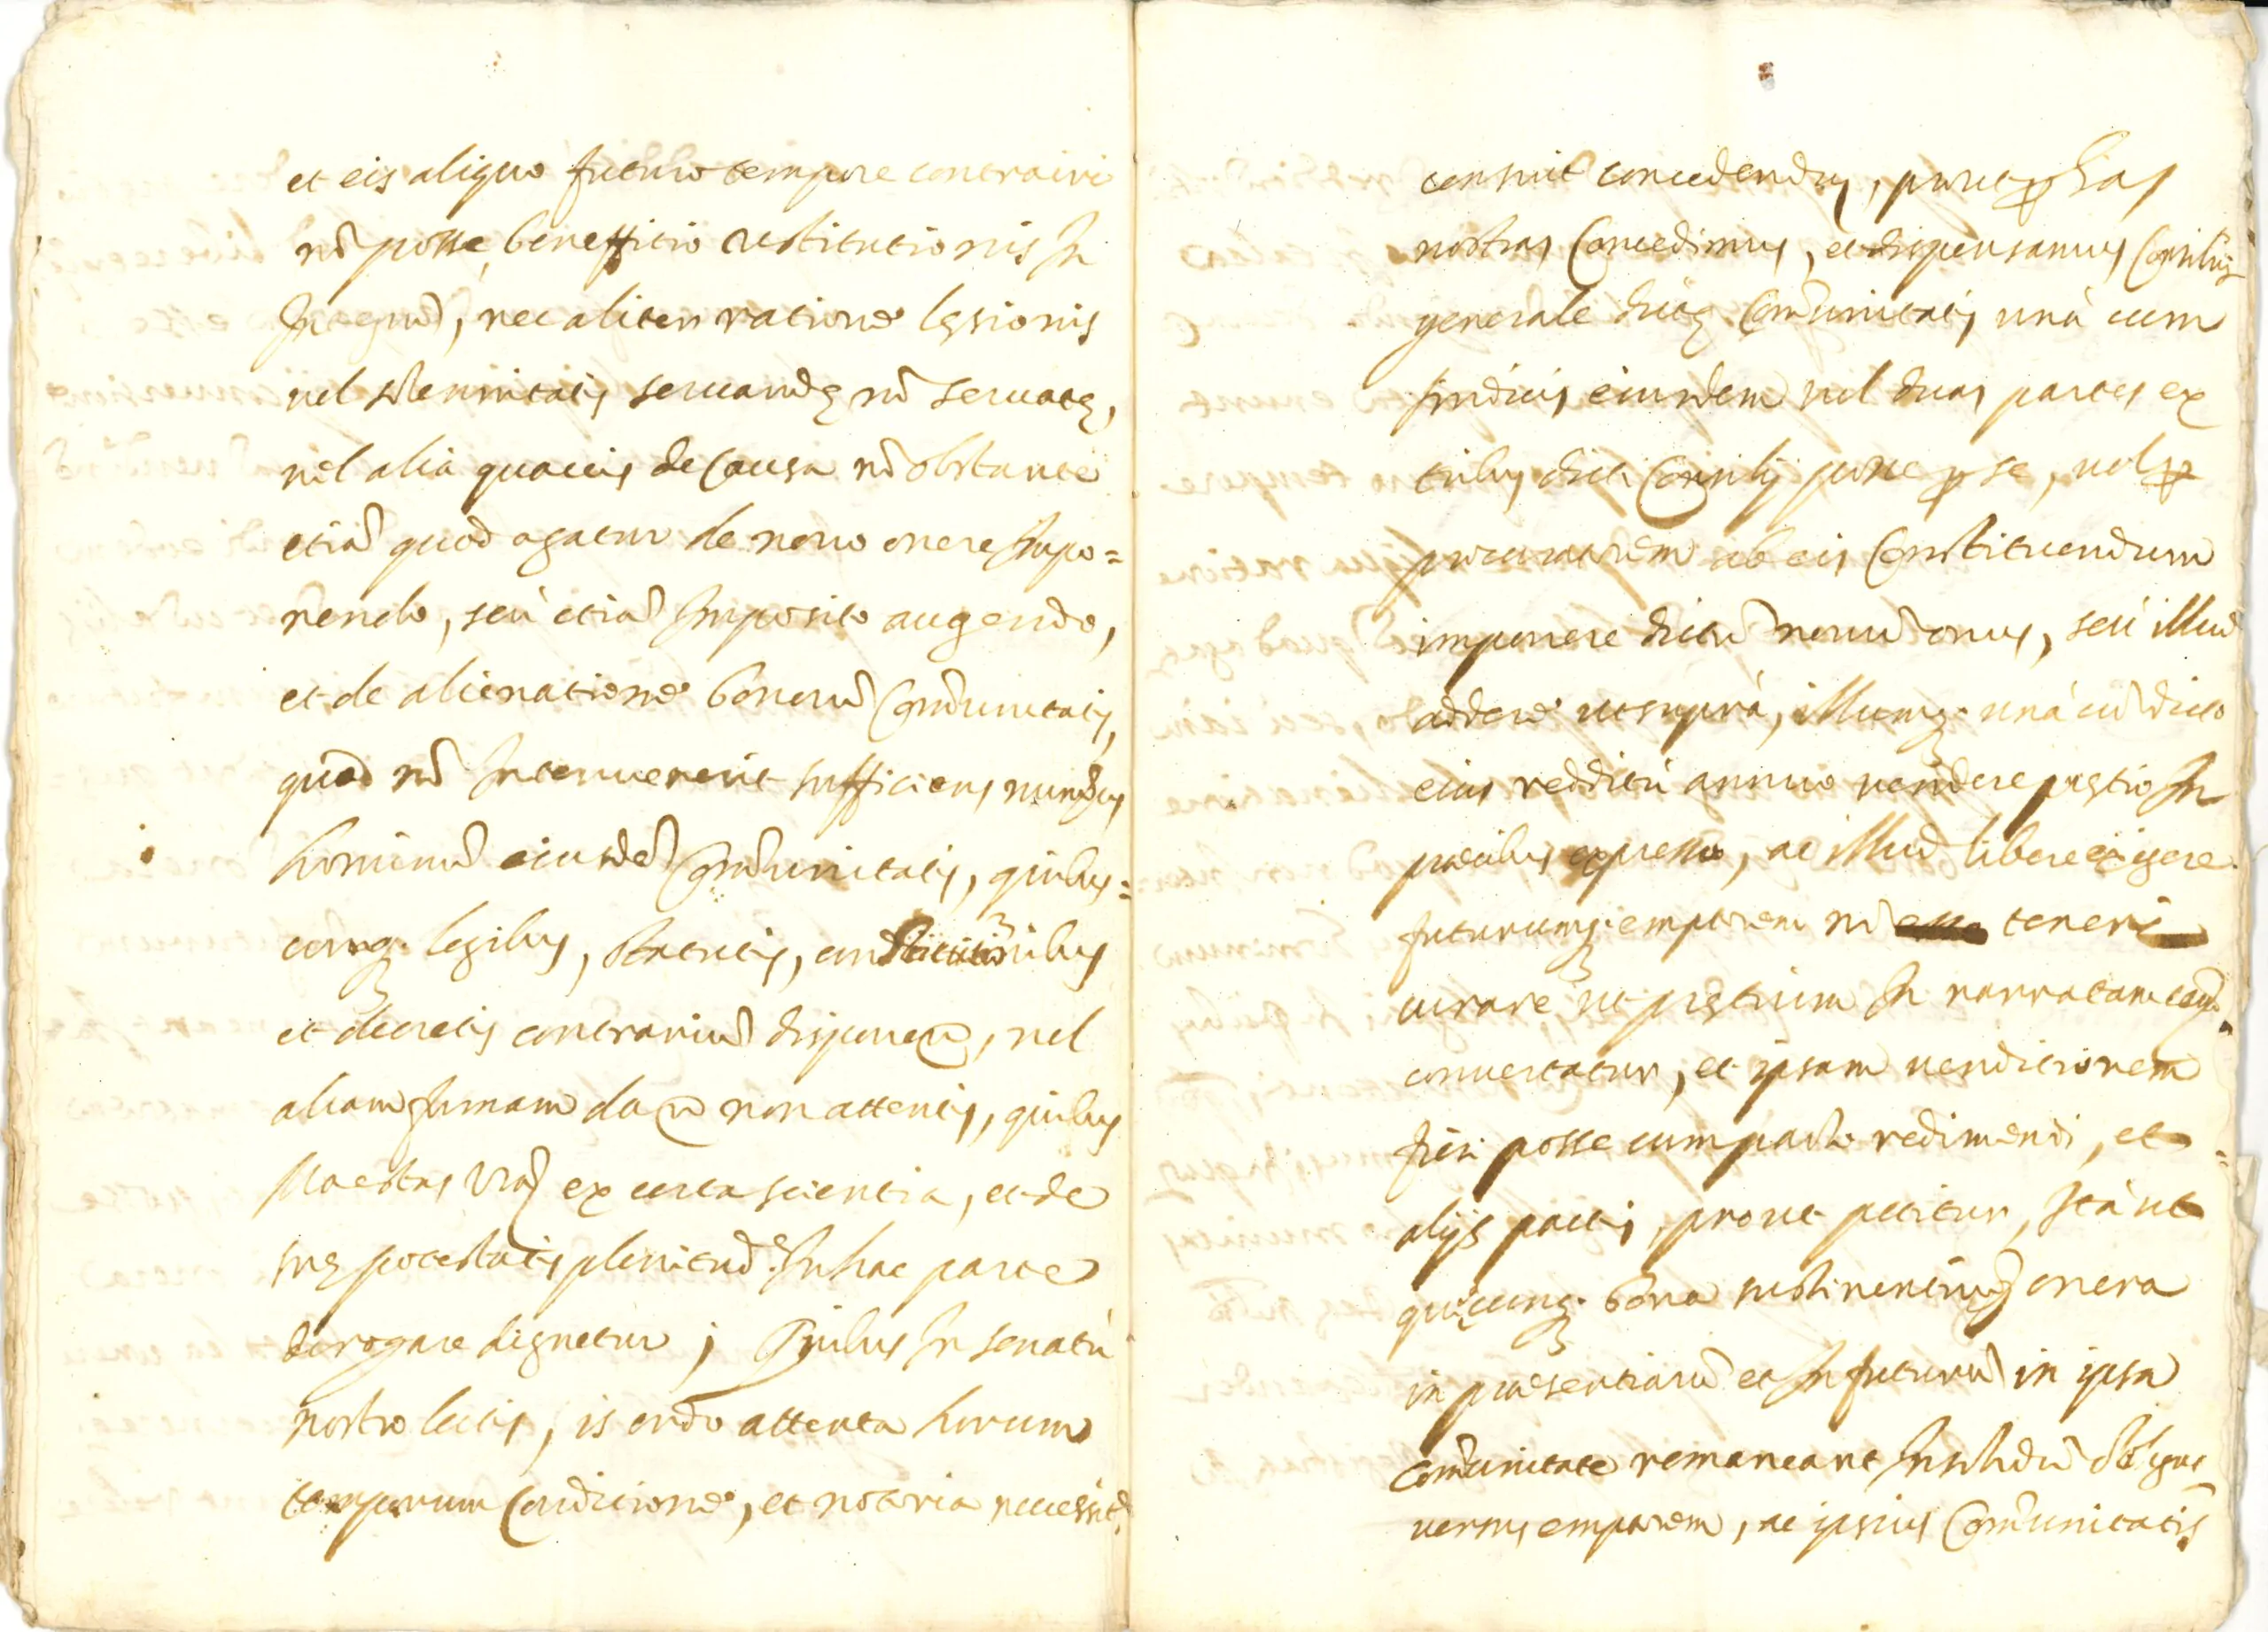 et eis aliquo futuro tempore contrairi
nõ posse beneffitio restitutionis In
Integrũ, nec aliter ratione lęsionis
vel solemnitatis seruandę nõ seruatę,
vel alia quauis de Causa nõ obstante
etiã quod agatur de nouo onere Impo=
nendo, seù etiã Imposito augendo,
et de alienatione bonorũ Com̃unitatis,
quod nõ Interuenerit sufficiens numerus
hominũ eiusdẽ Com̃unitatis, quibus=
cumq. legibus, statutis, constitutionibus
et decretis contrariũ disponen, vel
aliam formam dan non attentis, quibus
Maestas Vrã ex certa scientia, et de
suę potestatis plenitud.e In hac parte
derogare dignetur; Quibus In senatu
nostro lectis, is ordo attenta horum
temporum Condicione, et notoria necessit.
censuit concedendas, prout p has
nostras Concedimus, et dispensamus Consiliũ
generale dictę Com̃unitatis unà cum
sindicis eiusdem vel duas partes ex
tribus dicti Consilij posse p se, vel p
procuratorem ab eis Constituendum
imponere dictũ nouũ onus, seù illud
addere ut suprà, illumq. unà cũ dicto
eius redditu annuo vendere prętio In
precibus expresso, ac illud libere exigere
futurumq. emptorem nõ teneri
curare ut prętium In narratam caus.
conuertatur, et ipsam venditionem
fieri posse cum pacto redimendi, et
alijs pactis, prout petitur, Ità ut
quęcumq. bona sustinentiũ onera
in pręsentiarũ et In futurũ in ipsa
com̃unitate remaneant In solidũ oblig.
versus emptorem, ac ipsius Com̃unitatis